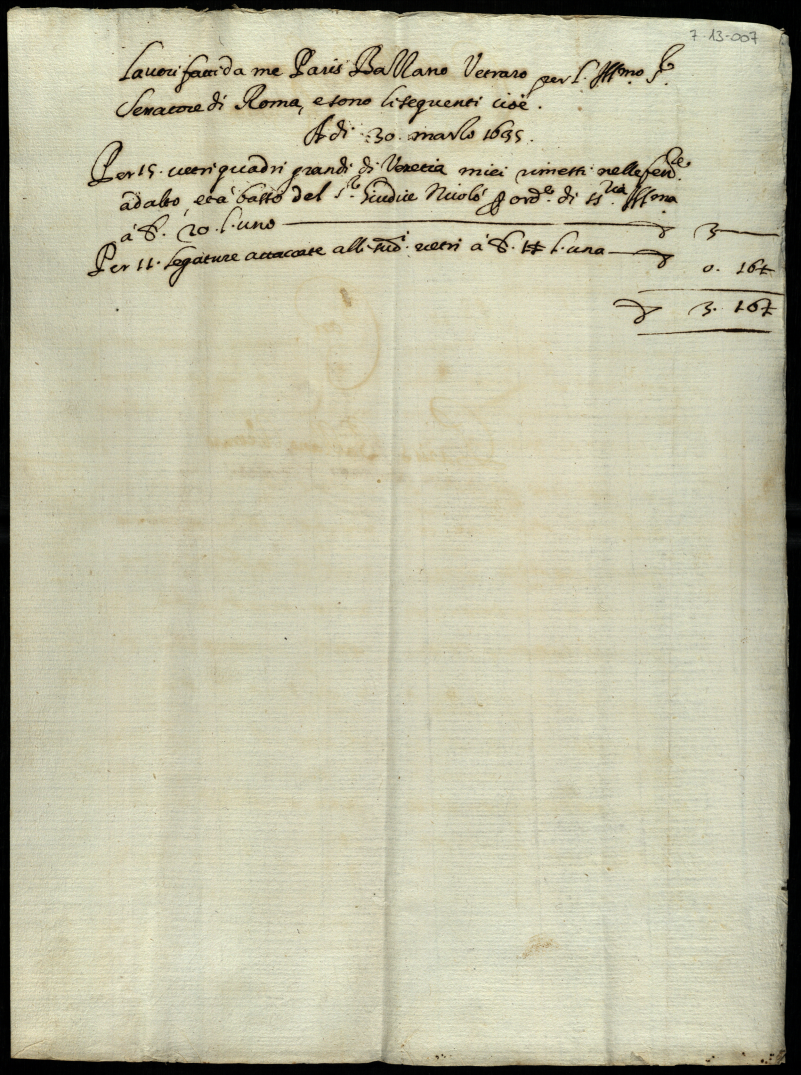 7-13-007
Lauori fatti da me Paris Ballano Vetraro per l'Illmo Sr
Senatore di Roma, e sono li seguenti cioè.
A di 30. marzo 1635.
Per 15. uetri quadri grandi di Venetia miei rimessi nelle fenre
ad alto, et à basso del Sr. Giudice Nicolò p ordе di SS.ria Illma
à b. 20. l'uno 3
Per 11. legature attaccate alli sudi. vetri à b. 1½ l'una 0. 16½
3. 16½